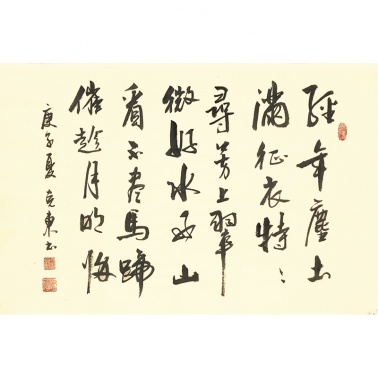 經年塵土
滿征衣特〻
尋芳上翠
微好水好山
看不盡馬蹄
催趁月明歸
庚子夏克東书